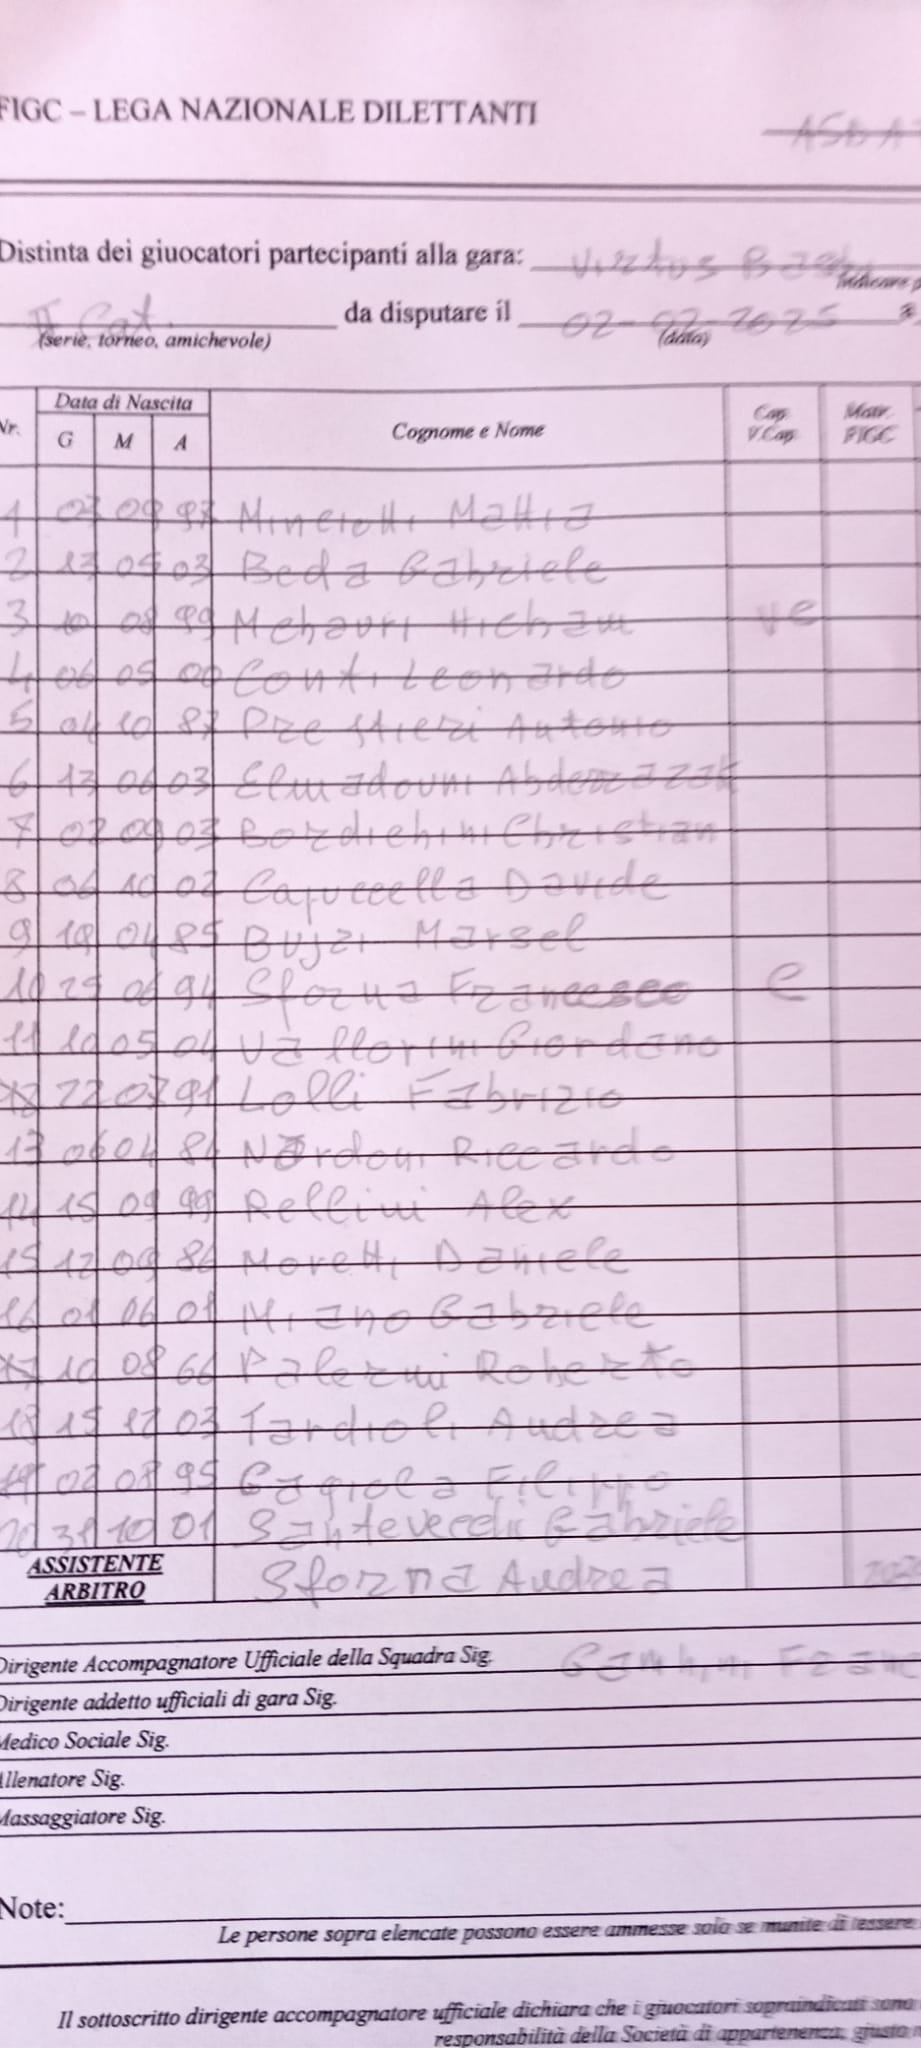 FIGC – LEGA NAZIONALE DILETTANTI
Distinta dei giuocatori partecipanti alla gara: Virtus
II Cat. da disputare il 02-02-2025
(serie, torneo, amichevole) (data)
Nr. Data di Nascita Cognome e Nome Cap. V.Cap. Matr. FIGC
G M A
1 07 09 97 Minciotti Mattia
2 13 05 03 Beda Gabriele
3 10 08 99 Mehauri Hicham vc
4 06 05 00 Conti Leonardo
5 04 10 87 Prestieri Antonio
6 13 06 03 Elmadouni Abderrazak
7 02 09 03 Bordichini Christian
8 06 10 02 Capuccella Davide
9 19 04 85 Bujari Marsel
10 29 06 94 Sforna Francesco c
11 10 05 04 Vallorini Giordano
12 22 07 91 Lolli Fabrizio
13 06 04 84 Nardoni Riccardo
14 15 09 99 Rellini Alex
15 12 09 86 Moretti Daniele
16 01 06 01 Miano Gabriele
17 10 08 66 Palermi Roberto
18 15 12 03 Tardioli Andrea
19 02 08 95 Gagiola Filippo
20 31 10 01 Santevecchi Gabriele
ASSISTENTE ARBITRO Sforna Andrea
Dirigente Accompagnatore Ufficiale della Squadra Sig.
Dirigente addetto ufficiali di gara Sig.
Medico Sociale Sig.
Allenatore Sig.
Massaggiatore Sig.
Note:
Le persone sopra elencate possono essere ammesse solo se munite di tessere
Il sottoscritto dirigente accompagnatore ufficiale dichiara che i giuocatori sopraindicati sono
responsabilità della Società di appartenenza, giusta